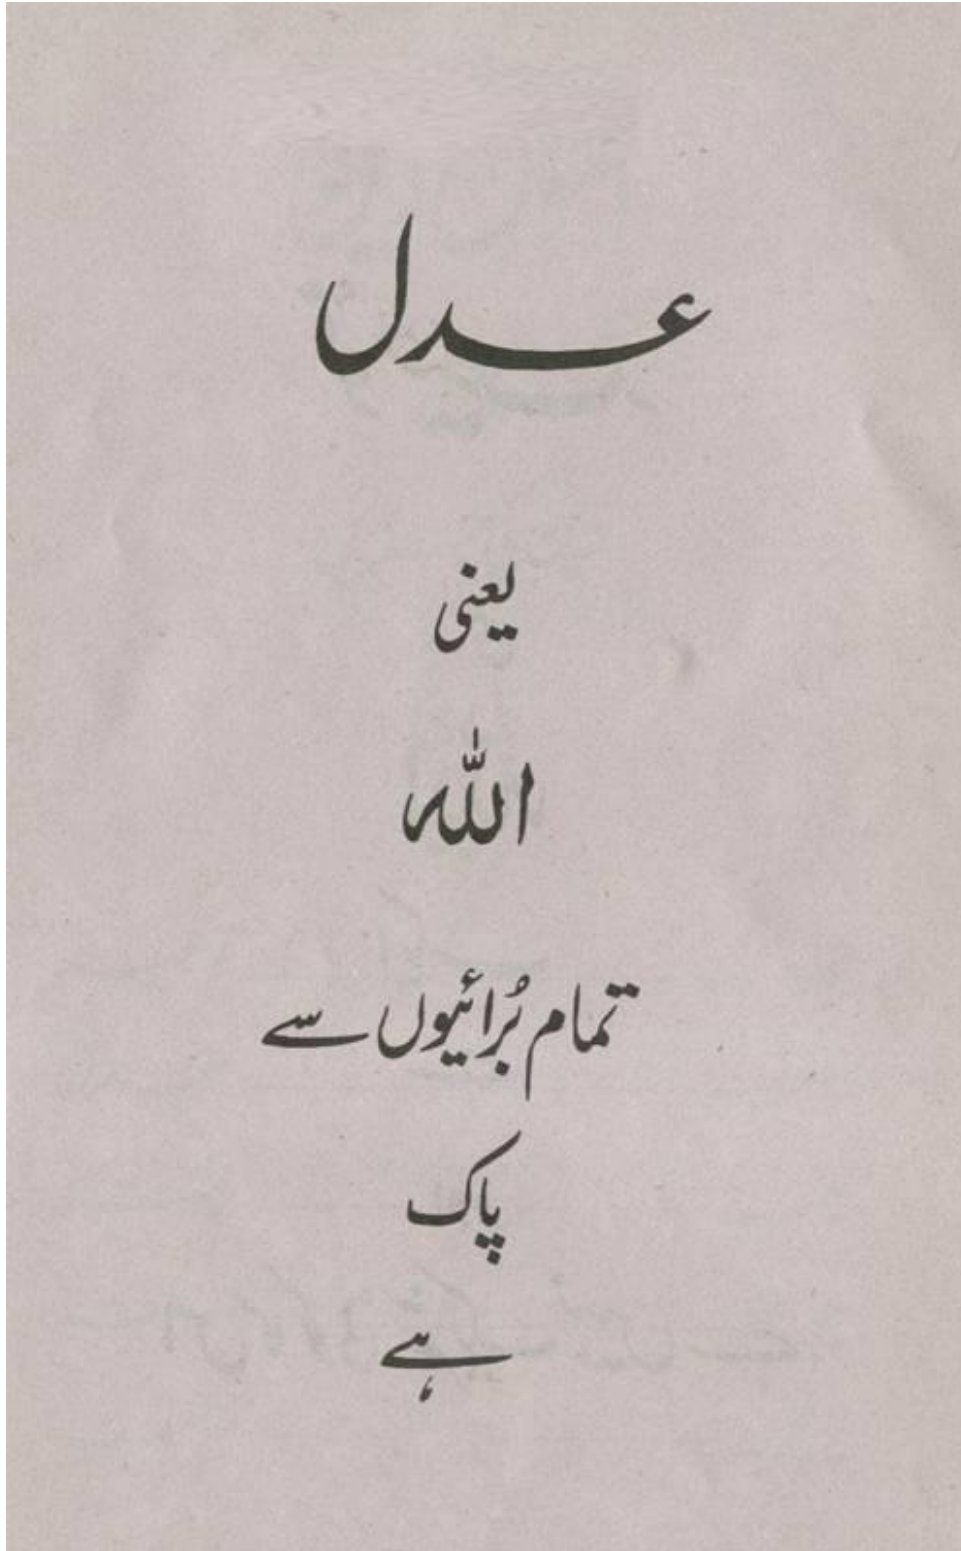 عدل
یعنی
اللہ
تمام بُرائیوں سے
پاک
ہے